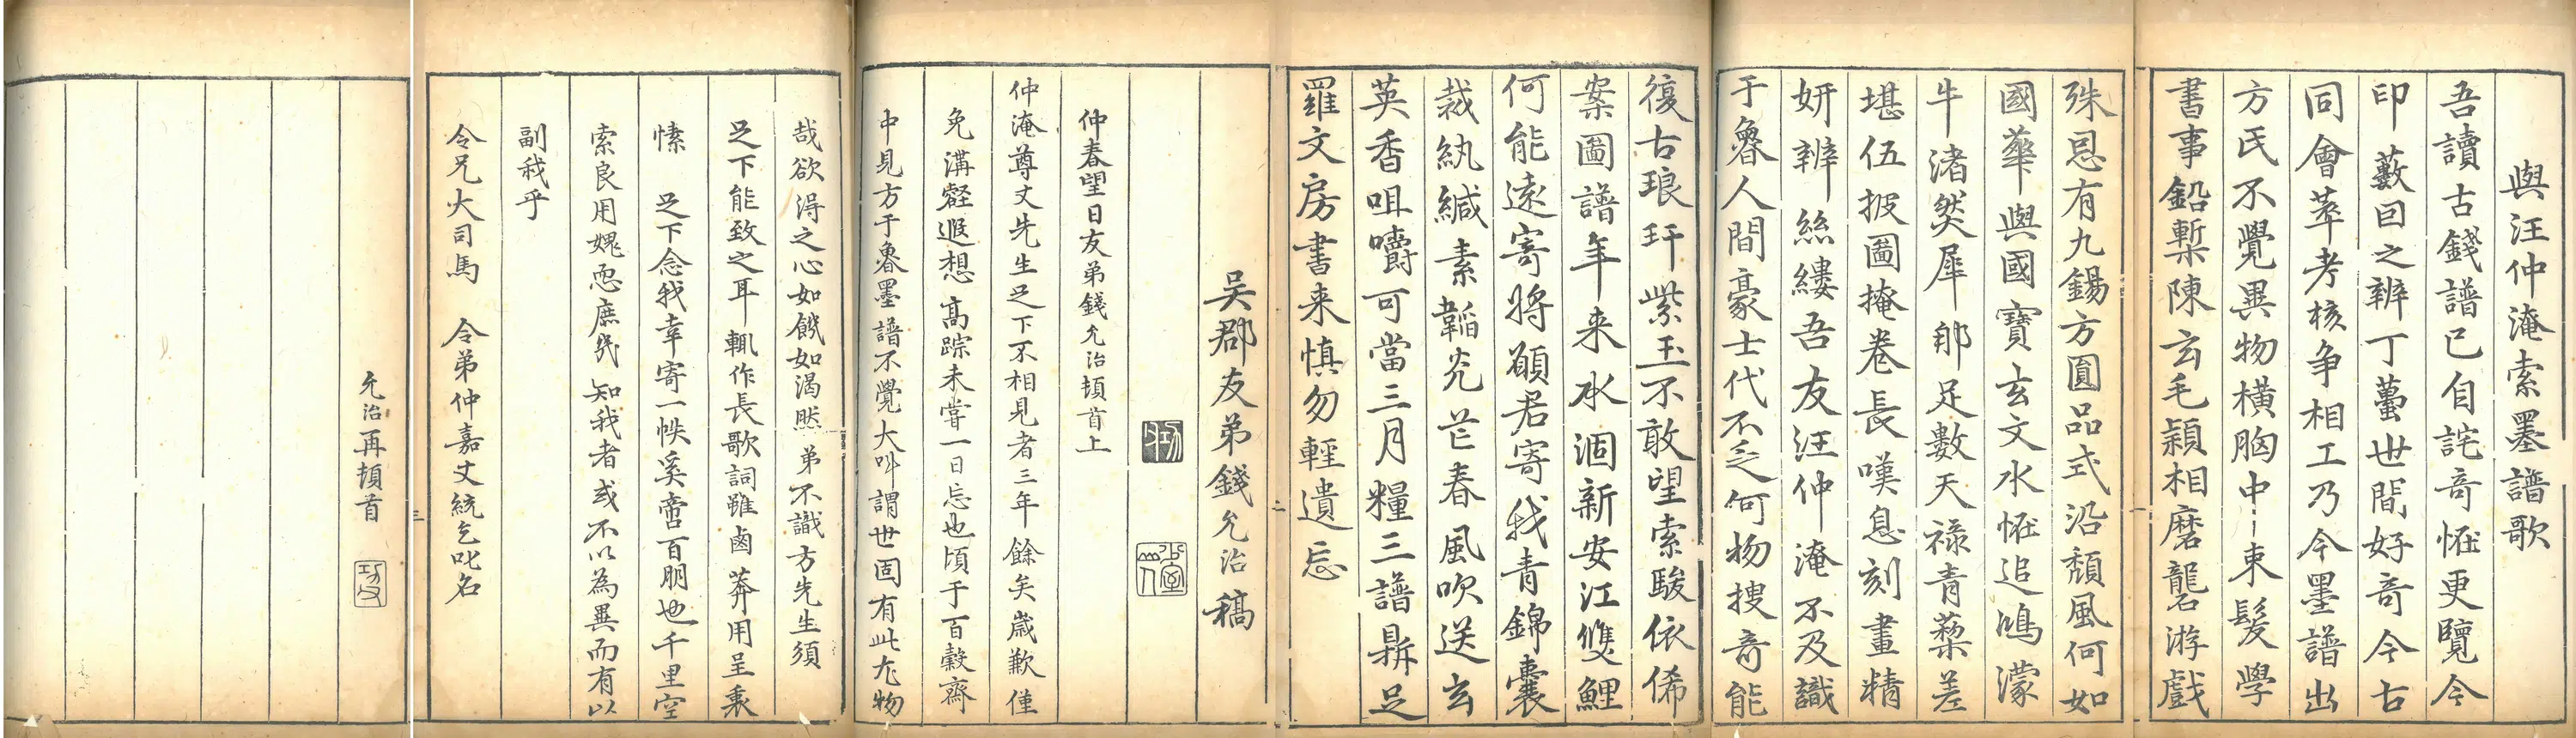 與汪仲淹索墨譜歌
吾讀古錢譜已自詫奇恠更覽今
印藪囙之辨丁蠆世間好奇今古
同會萃考核争相工乃今墨譜出
方氏不覺異物横胸中束髮學
書事鉛槧陳玄毛穎相磨礲游戲
殊恩有九錫方圓品式沿頽風何如
國華與國寶玄文水恠追鴻濛
牛渚燃犀那足數天禄青藜差
堪伍披圖掩卷長嘆息刻畫精
妍辨絲縷吾友汪仲淹不及識
于魯人間豪士代不乏何物搜奇能
復古琅玕紫玉不敢望索駿依俙
案圖譜年来水涸新安江雙鯉
何能遠寄將願君寄我青錦囊
裁紈緘素韜光芒春風吹送玄
英香咀嚼可當三月糧三譜鼎足
羅文房書来慎勿輕遺忘
吴郡友弟錢允治稿
仲春望日友弟錢允治頓首上
仲淹尊丈先生足下不相見者三年餘矣歲歉僅
免溝壑遐想高踪未嘗一日忘也頃于百穀齋
中見方于魯墨譜不覺大叫謂世固有此尤物
哉欲得之心如饑如渴然弟不識方先生須
足下能致之耳輒作長歌詞雖鹵莽用呈衷
愫 足下念我幸寄一帙奚啻百朋也千里空
索良用媿恧庶幾知我者或不以為異而有以
副我乎
令兄大司馬 令弟仲嘉丈統乞叱名
允治再頓首